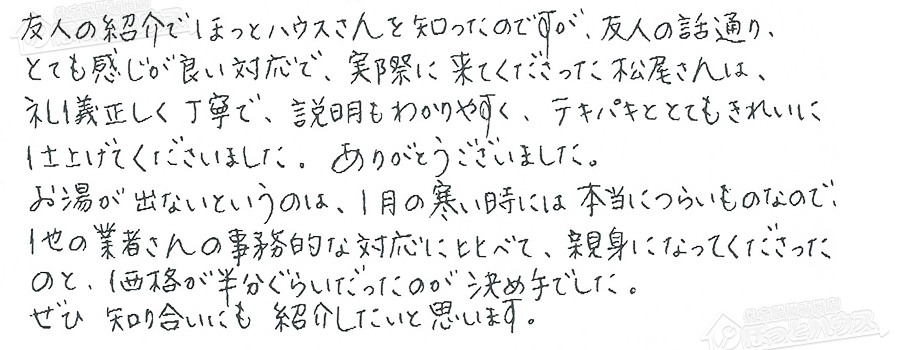 友人の紹介でほっとハウスさんを知ったのですが、友人の話通り、
とても感じが良い対応で、実際に来てくださった松尾さんは、
礼儀正しく丁寧で、説明もわかりやすく、テキパキととてもきれいに
仕上げてくださいました。ありがとうございました。
お湯が出ないというのは、1月の寒い時には本当につらいものなので、
他の業者さんの事務的な対応にくらべて、親身になってくださった
のと、価格が半分ぐらいだったのが決め手でした。
ぜひ知り合いにも紹介したいと思います。